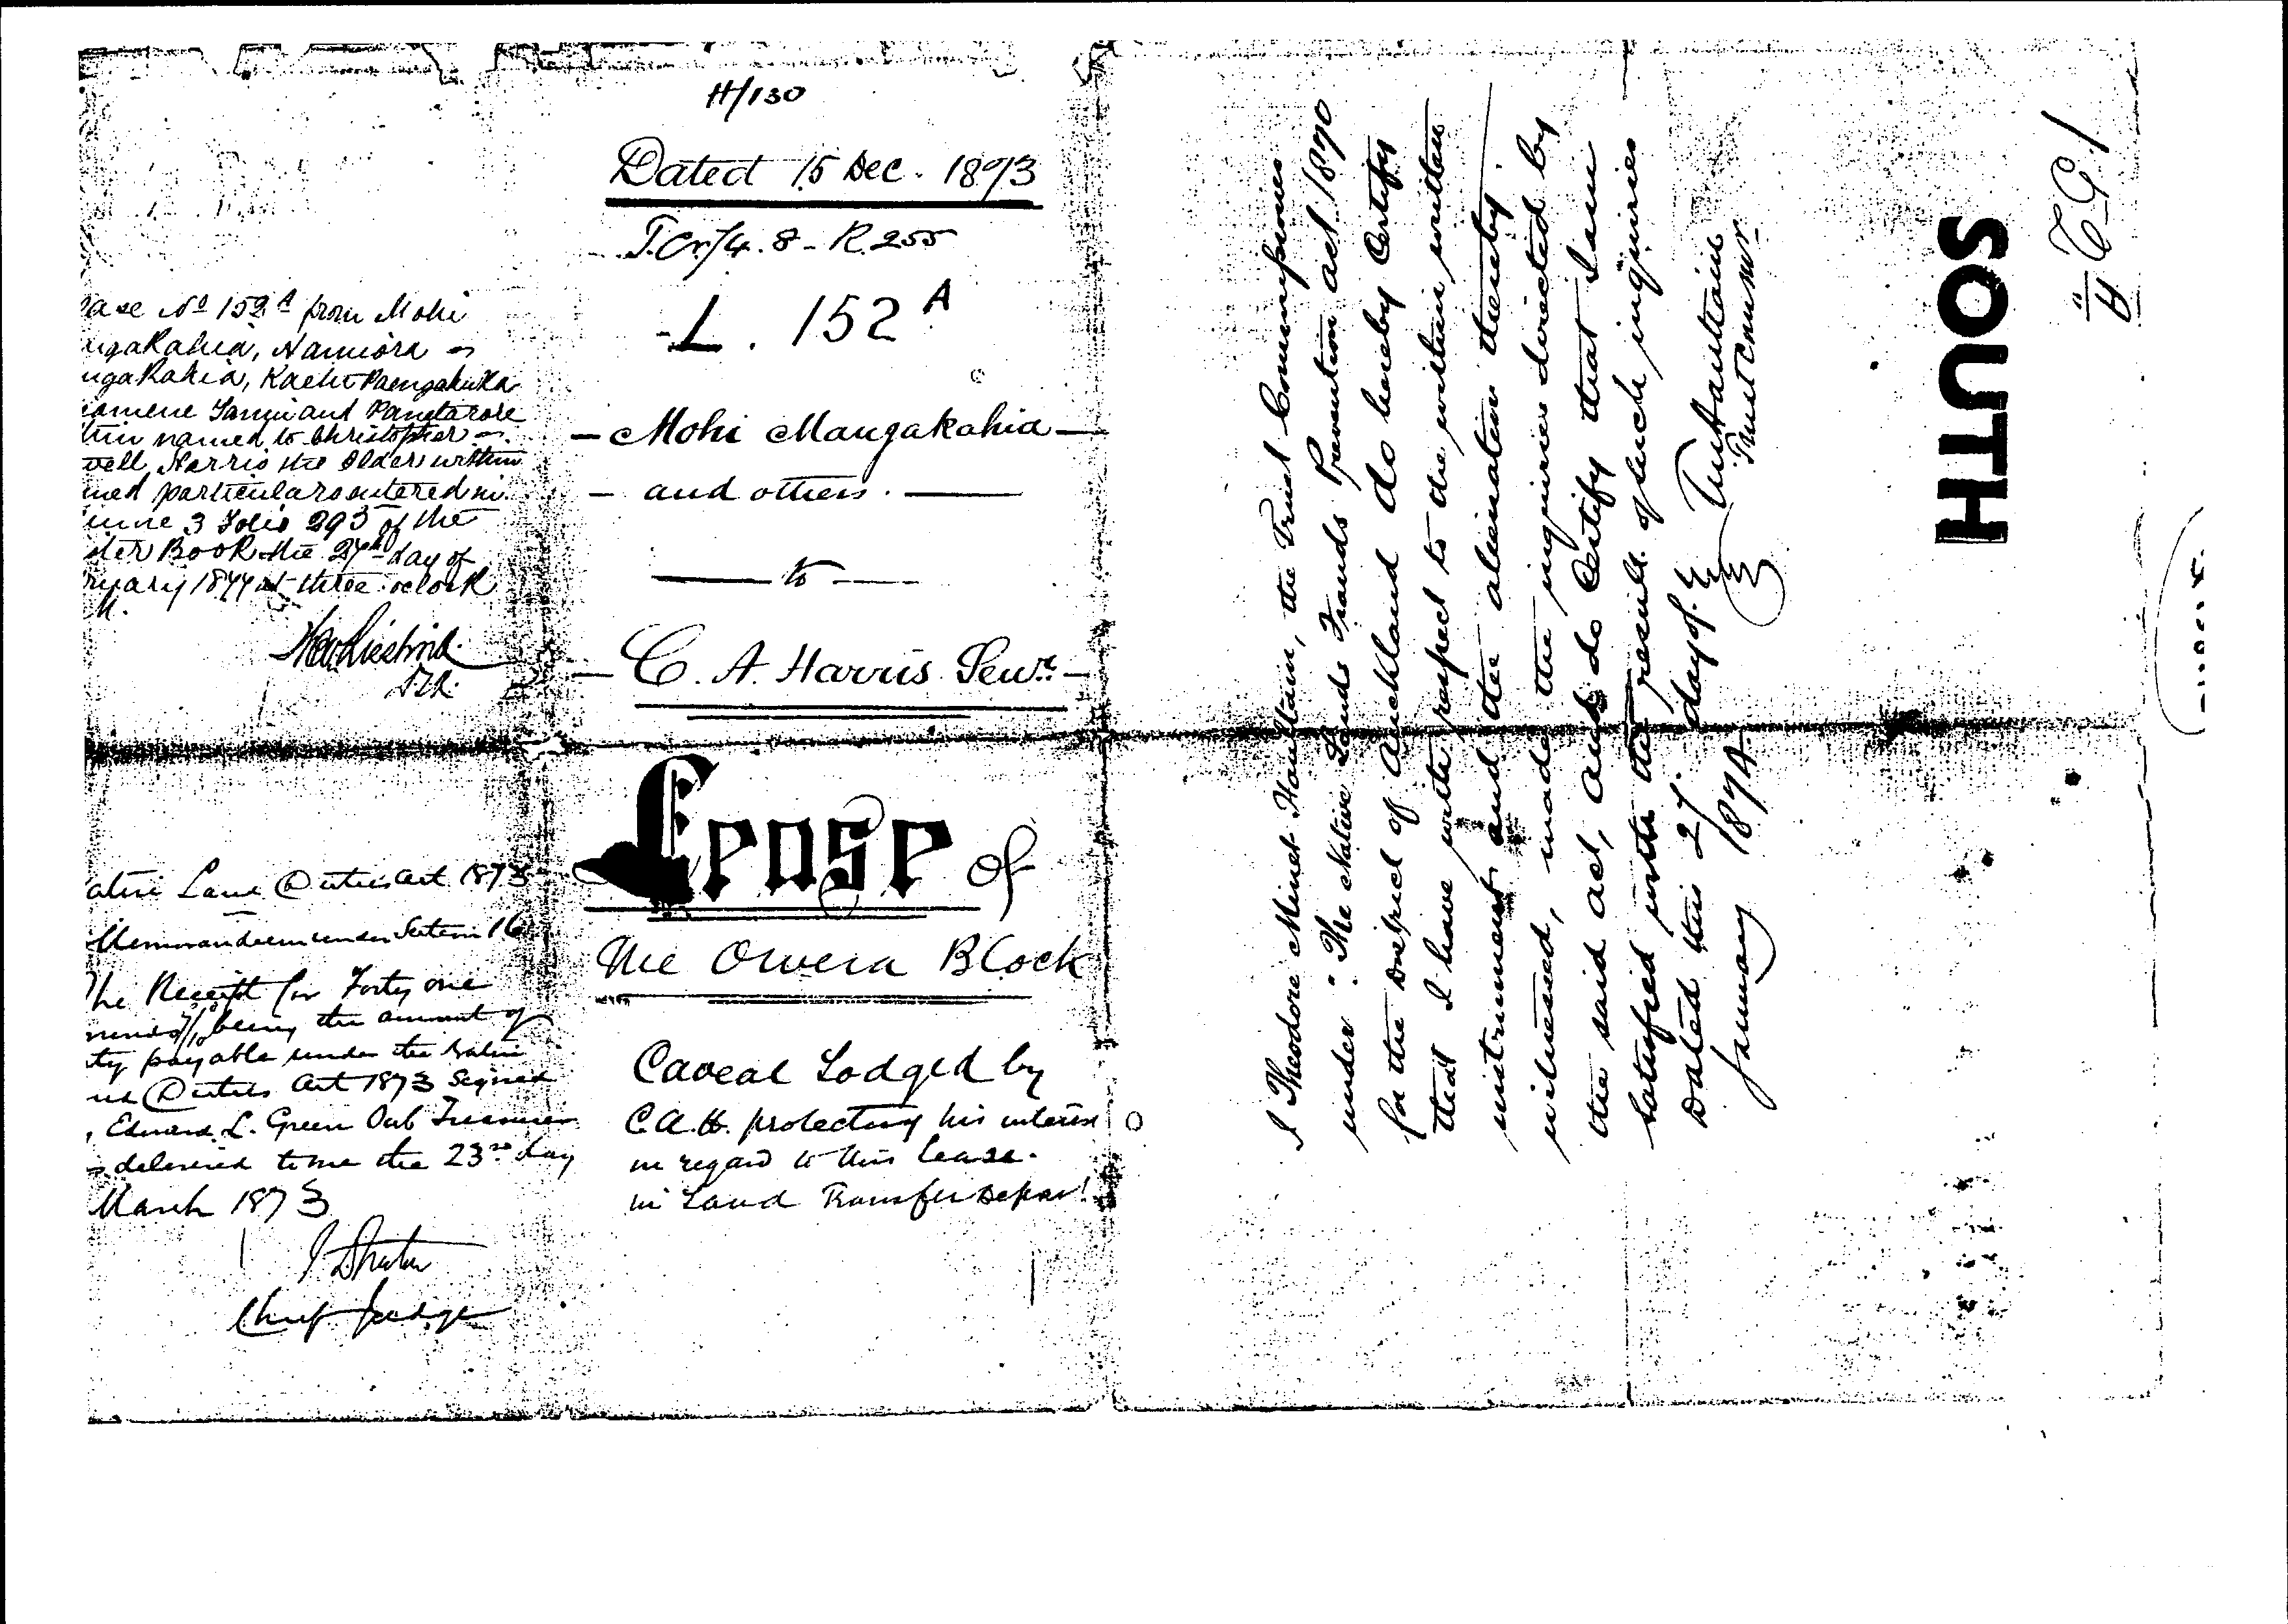 H/130
Dated 15 Dec. 1893
R. 255
L. 152 A
Mohi Mangakahia
and others.
to
C. A. Harris Senr.
Lease of
The Owera Block
Caveat Lodged by
C.A.H. protecting his interest
in regard to this lease.
in Land Transfer Depart
ase No 152 A from Mohi
ngakahia,
ngakahia,
and
hin named to Christopher
well Harris the Elder within
med particulars entered in
ume 3 Folio 293 of the
ster Book the 27th day of
ruary 1874 at three oclock
M.
ative Land Duties Act 1873
Memorandum under Section 16
The Receipt for Forty one
being the amount of
ty payable under the Native
Duties Act 1873 Signed
Edward L. Green Sub Treasurer
delivered to me the 23rd day
March 1873
Chief Judge
I Theodore Minet Haultain, the Trust Commissioner
under "The Native Lands Frauds Prevention Act 1870
for the District of Auckland do hereby Certify
that I have with respect to the within written
instrument and the alienation thereby
witnessed, made the inquiries directed by
the said act, and do Certify that I am
satisfied with the result of such inquiries
Dated this 27 day of
January 1874
Trust Commr.
SOUTH